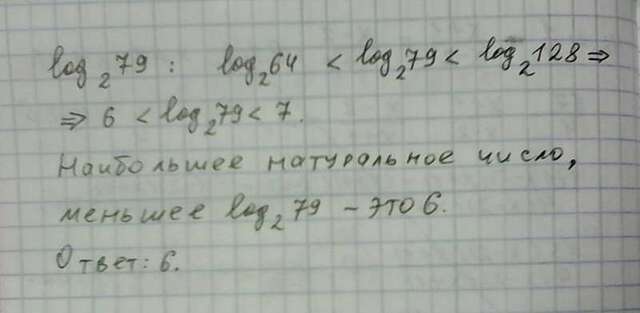 log₂79 : log₂64 < log₂79 < log₂128 ⇒
⇒ 6 < log₂79 < 7.
Наибольшее натуральное число,
меньшее log₂79 – это 6.
Ответ: 6.